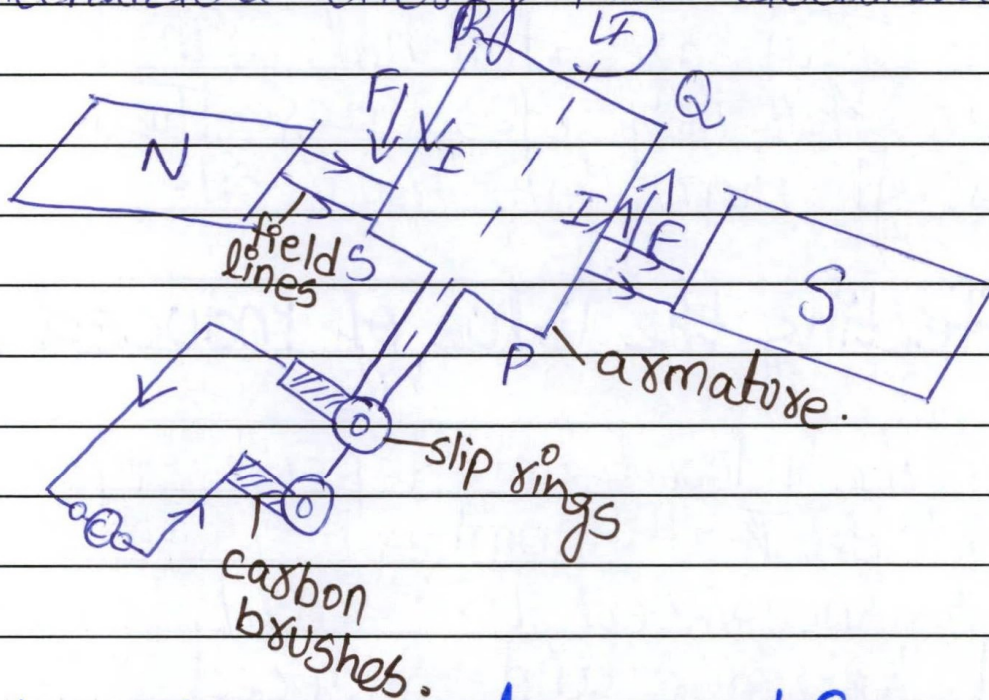 R
Q
F
N
I
I
F
field
lines
S
S
P
armature.
slip rings
carbon
brushes.